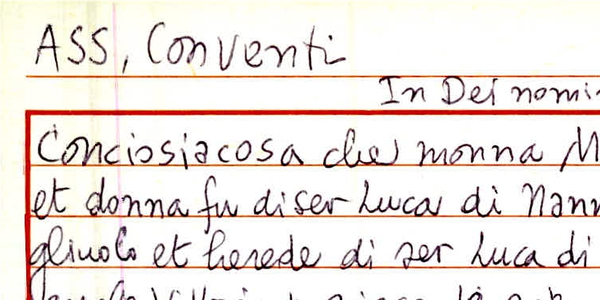 ASS, Conventi
In Dei nomi
Conciosiacosa che monna M
et donna fu di ser Luca di Nann
gliuolo et herede di ser Luca di